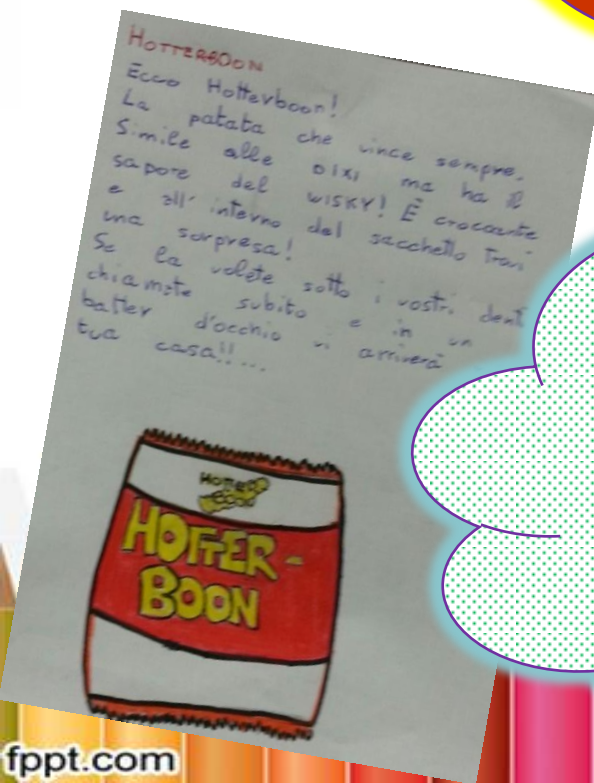 HOTTERBOON
Ecco Hotterboon!
La patata che vince sempre.
Simile alle DIXI ma ha il
sapore del WISKY! È croccante
e all'interno del sacchetto trovi
una sorpresa!
Se la volete sotto i vostri denti
chiamate subito e in un
batter d'occhio vi arriverà
tua casa!!...
HOTTER
BOON
HOTTER-
BOON
fppt.com